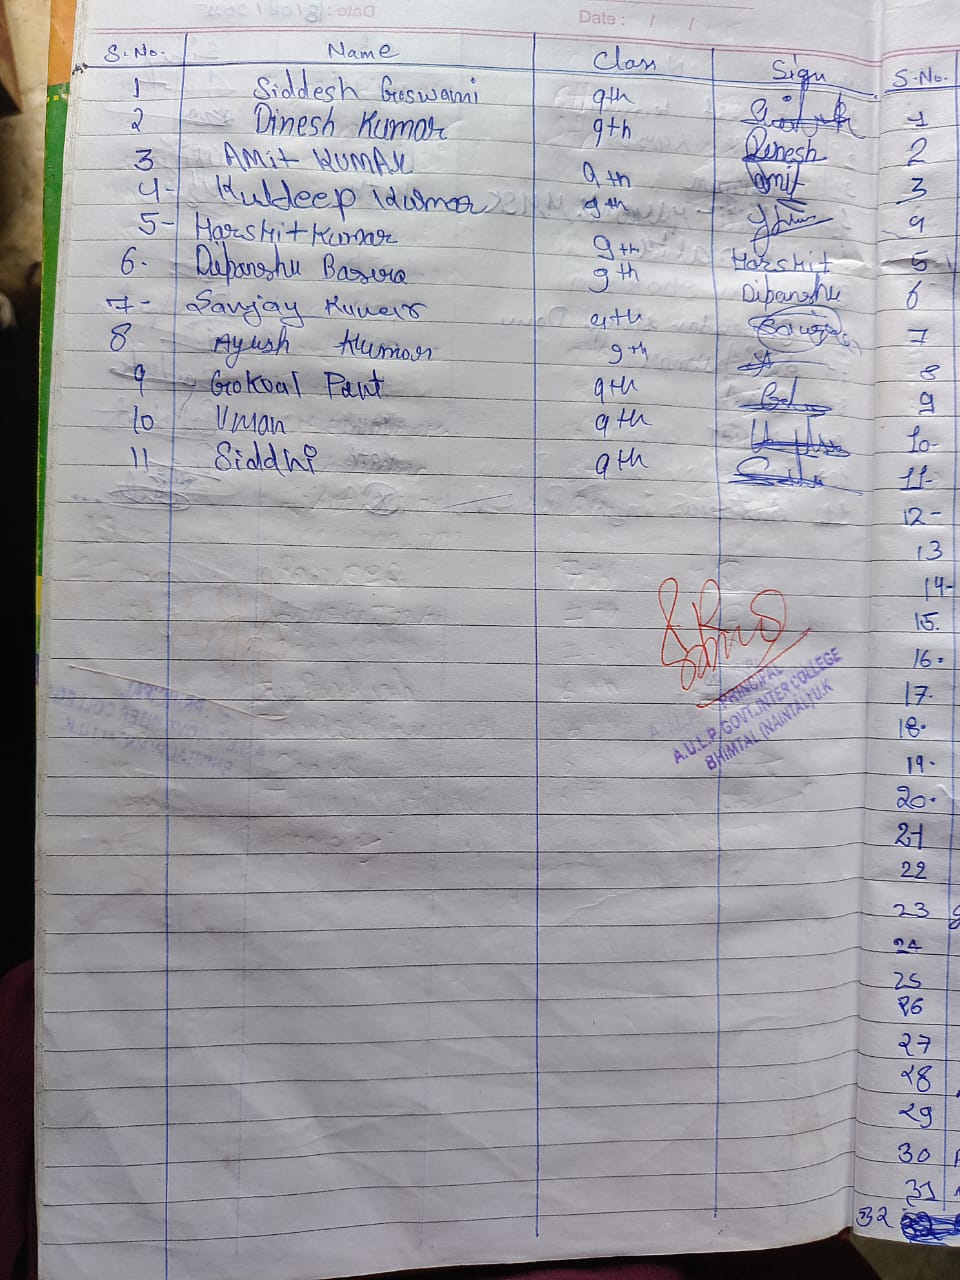 Date : / /
S.No. Name Class Sign
1 Siddesh Goswami 9th
2 Dinesh Kumar 9th Dinesh
3 Amit Kumar 9th Amit
4- Kuldeep Kumar 9th
5- Harshit Kumar 9th Harshit
6. Dipanshu Basera 9th Dipanshu
7- Sanjay Kumar 9th
8 Ayush Kumar 9th
9 Gokoal Pant 9th
10 Uman 9th
11 Siddhi 9th
PRINCIPAL
A.U.L.P. GOVT. INTER COLLEGE
BHIMTAL (NAINITAL) U.K
S.No.
1
2
3
4
5
6
7
8
9
10-
11-
12-
13
14-
15.
16.
17.
18.
19.
20.
21
22
23
24
25
26
27
28
29
30
31
32